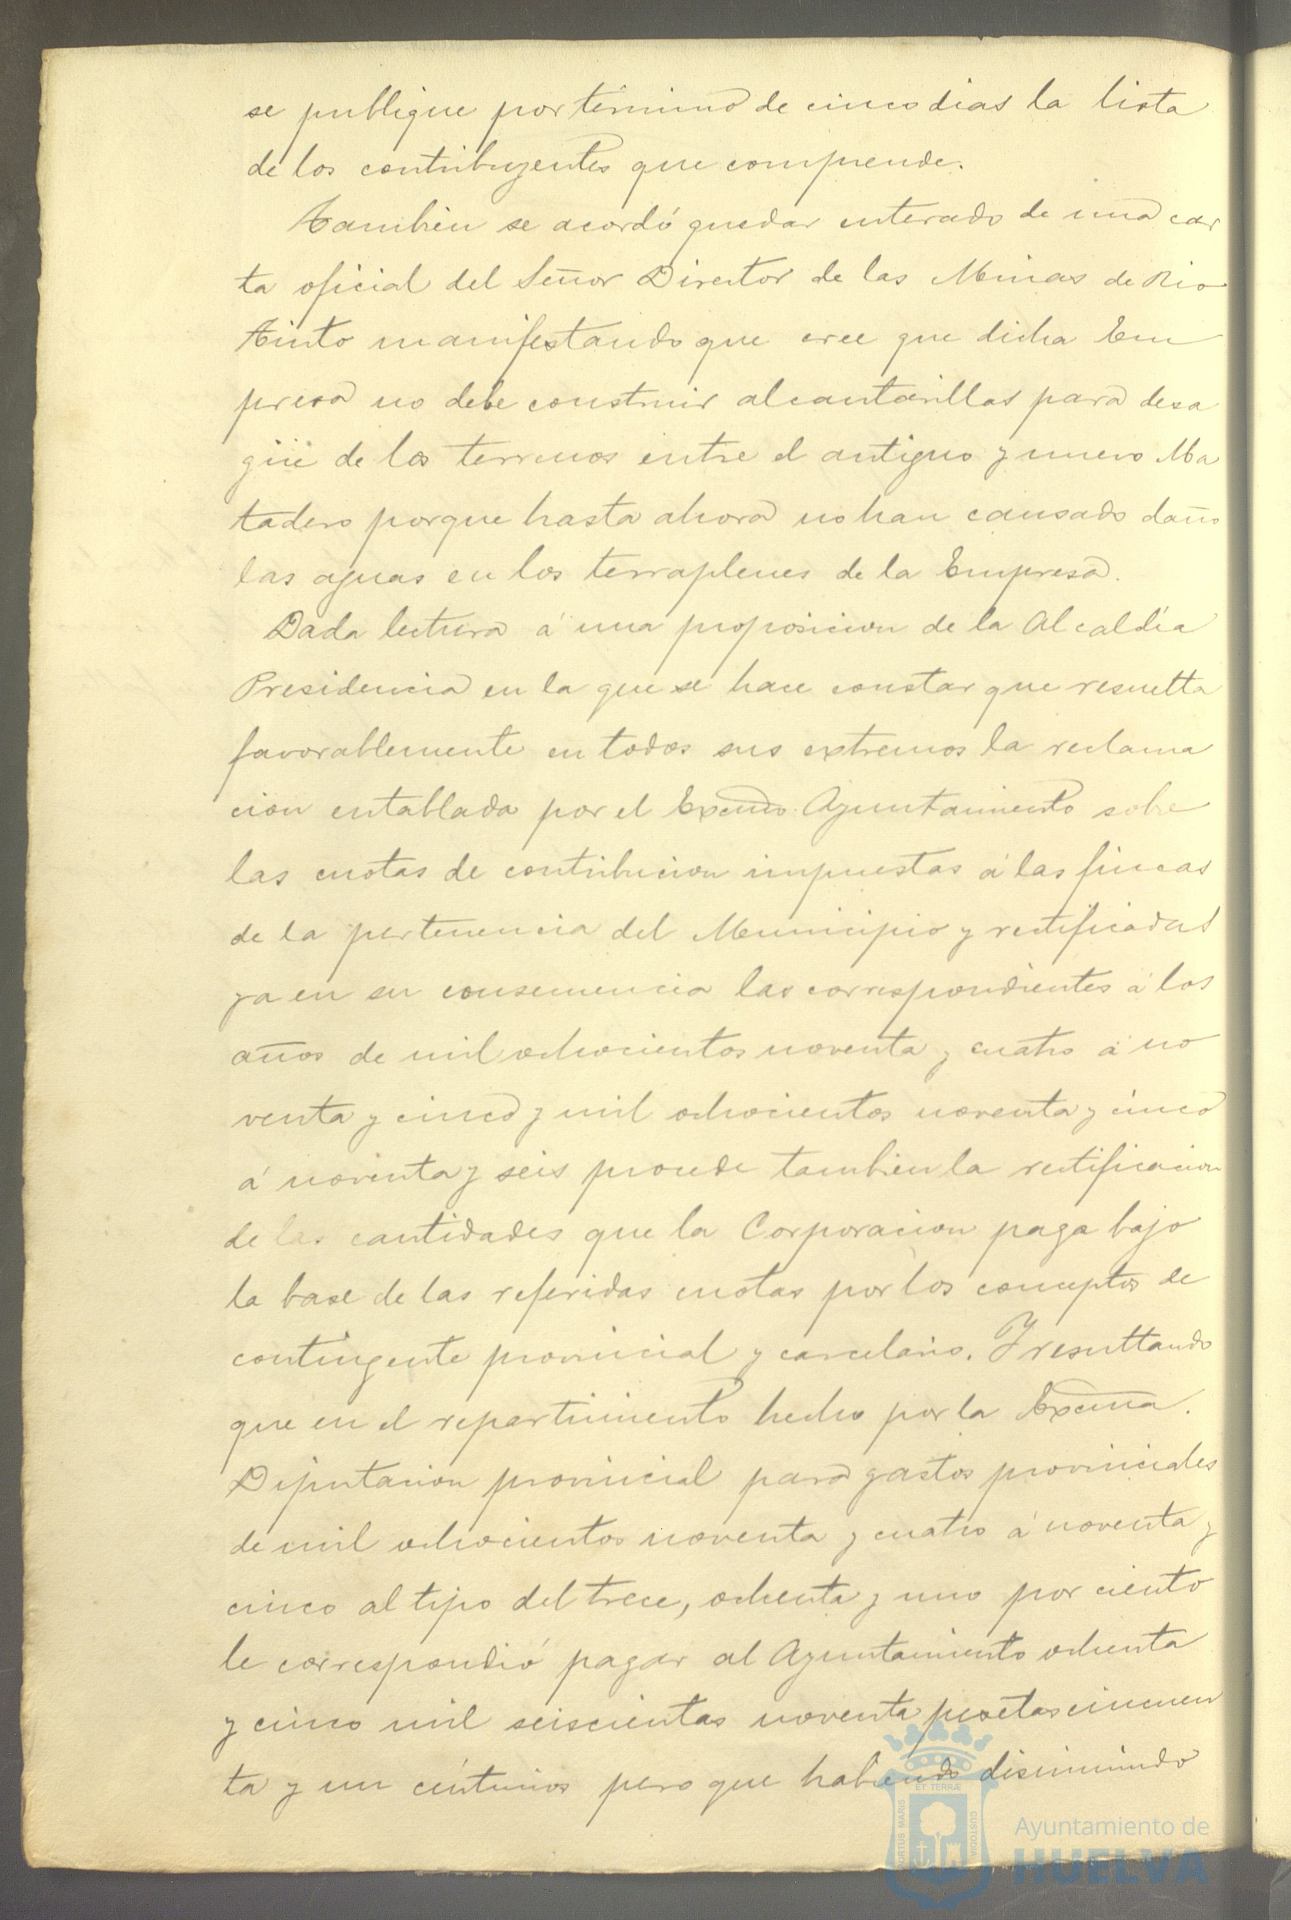 se publique por término de cinco dias la lista
de los contribuyentes que comprende.
Tambien se acordó quedar enterado de una car
ta oficial del Señor Director de las Minas de Rio
Tinto manifestando que cree que dicha Em
presa no debe construir alcantarillas para desa
güe de los terrenos entre el antiguo y nuevo Ma
tadero porque hasta ahora no han causado daño
las aguas en los terraplenes de la Empresa.
Dada lectura á una proposicion de la Alcaldía
Presidencia en la que se hace constar que resuelta
favorablemente en todos sus extremos la reclama
cion entablada por el Excmo. Ayuntamiento sobre
las cuotas de contribucion impuestas á las fincas
de la pertenencia del Municipio y rectificadas
ya en su consecuencia las correspondientes á los
años de mil ochocientos noventa y cuatro á no
venta y cinco y mil ochocientos noventa y cinco
á noventa y seis procede tambien la rectificacion
de las cantidades que la Corporacion paga bajo
la base de las referidas cuotas por los conceptos de
contingente provincial y carcelario. Y resultando
que en el repartimiento hecho por la Excma.
Diputacion provincial para gastos provinciales
de mil ochocientos noventa y cuatro á noventa y
cinco al tipo del trece, ochenta y uno por ciento
le correspondió pagar al Ayuntamiento ochenta
y cinco mil seiscientas noventa pesetas cincuen
ta y un céntimos pero que habiendo disminuido
ET TERRÆ
PORTUS MARIS
CUSTODIA
Ayuntamiento de
HUELVA